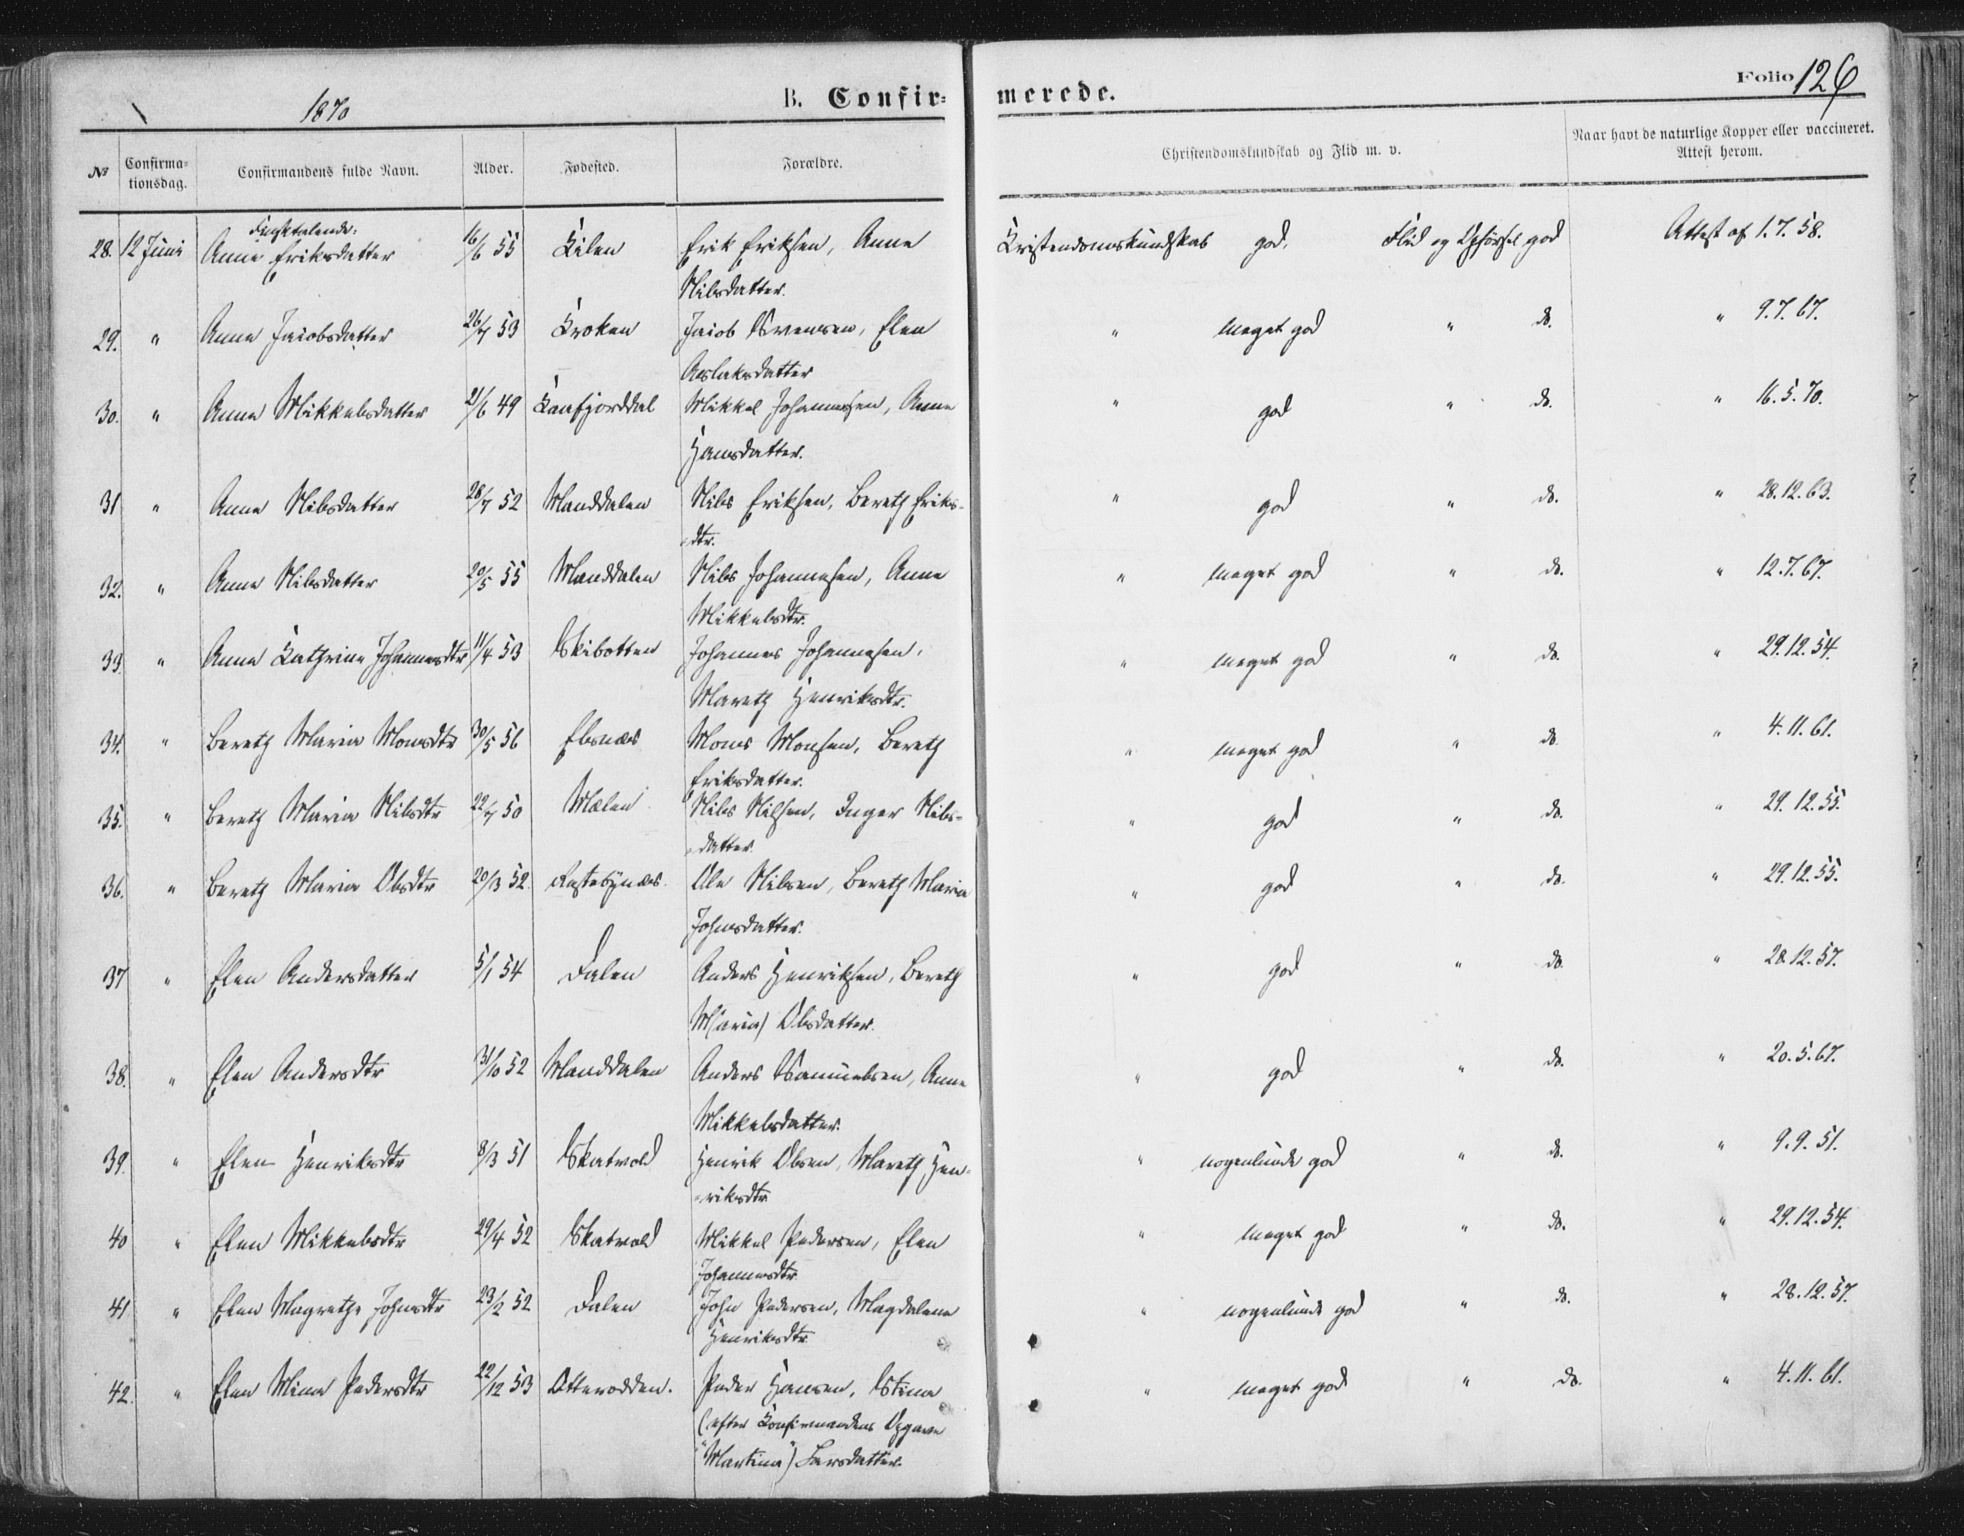 1870 B. Confir= merede. Folio 126
№ Confirma=tionsdag. Confirmandens fulde Navn. Alder. Fødested. Forældre. Christendomskundskab og Flid m. v. Naar havt de naturlige Kopper eller vaccineret. Attest herom.
Finsktalende:
28. 12 Juni Anne Eriksdatter 16/6 55 Kilen Erik Eriksen, Anne Kristendomskundskab god. Flid og Opførsel god Attest af 1.7.58.
Nilsdatter.
29. " Anne Jacobsdatter 26/7 53 Kroken Jacob Svensen, Elen " meget god " do. " 9.7.67.
Aslaksdatter
30. " Anne Mikkelsdatter 21/6 49 Kaafjorddal Mikkel Johannesen, Anne " god " do. " 16.5.70.
Hansdatter.
31 " Anne Nilsdatter 28/7 52 Manddalen Nils Eriksen, Bereth Eriks- " god " do. " 28.12.63.
-dtr.
32. " Anne Nilsdatter 20/5 55 Manddalen Nils Johannesen, Anne " meget god " do. " 12.7.67.
Mikkelsdtr.
33. " Anne Kathrine Johannesdtr 11/4 53 Skibotten Johannes Johannesen, " meget god " do. " 29.12.54.
Mareth Henriksdtr.
34. " Bereth Maria Monsdtr 30/5 56 Elsnæs Mons Monsen, Bereth " meget god " do. " 4.11.61.
Eriksdatter.
35. " Bereth Maria Nilsdtr 22/7 50 Mælen Nils Nilsen, Inger Nils- " god " do. " 29.12.55.
-datter.
36. " Bereth Maria Olsdtr 20/3 52. Rastebynæs. Ole Nilsen, Bereth Maria " god " do. " 29.12.55.
Johnsdatter.
37 " Elen Andersdatter 5/1 54 Dalen Anders Henriksen, Bereth " god " do. " 28.12.57.
M(aria) Olsdatter.
38. " Elen Andersdtr 31/10 52 Manddalen Anders Samuelsen, Anne " god " do. " 20.5.67.
Mikkelsdatter.
39. " Elen Henriksdtr 8/3 51 Skatvold Henrik Olsen, Mareth Hen- " nogenlunde god " do. " 9.9.51.
-riksdtr
40 " Elen Mikkelsdtr 29/4 52 Skatvold Mikkel Pedersen, Elen " meget god " do. " 29.12.54.
Johannesdtr.
41. " Elen Magrethe Johnsdtr 23/2 52 Dalen John Pedersen, Magdalene " nogenlunde god " do. " 28.12.57.
Henriksdtr.
42. " Elen Mina Pedersdtr 22/12 53 Otterodden. Peder Hansen, Stina " meget god " do. " 4.11.61.
(efter Konfirmandens Opgave
"Martina") Larsdatter.